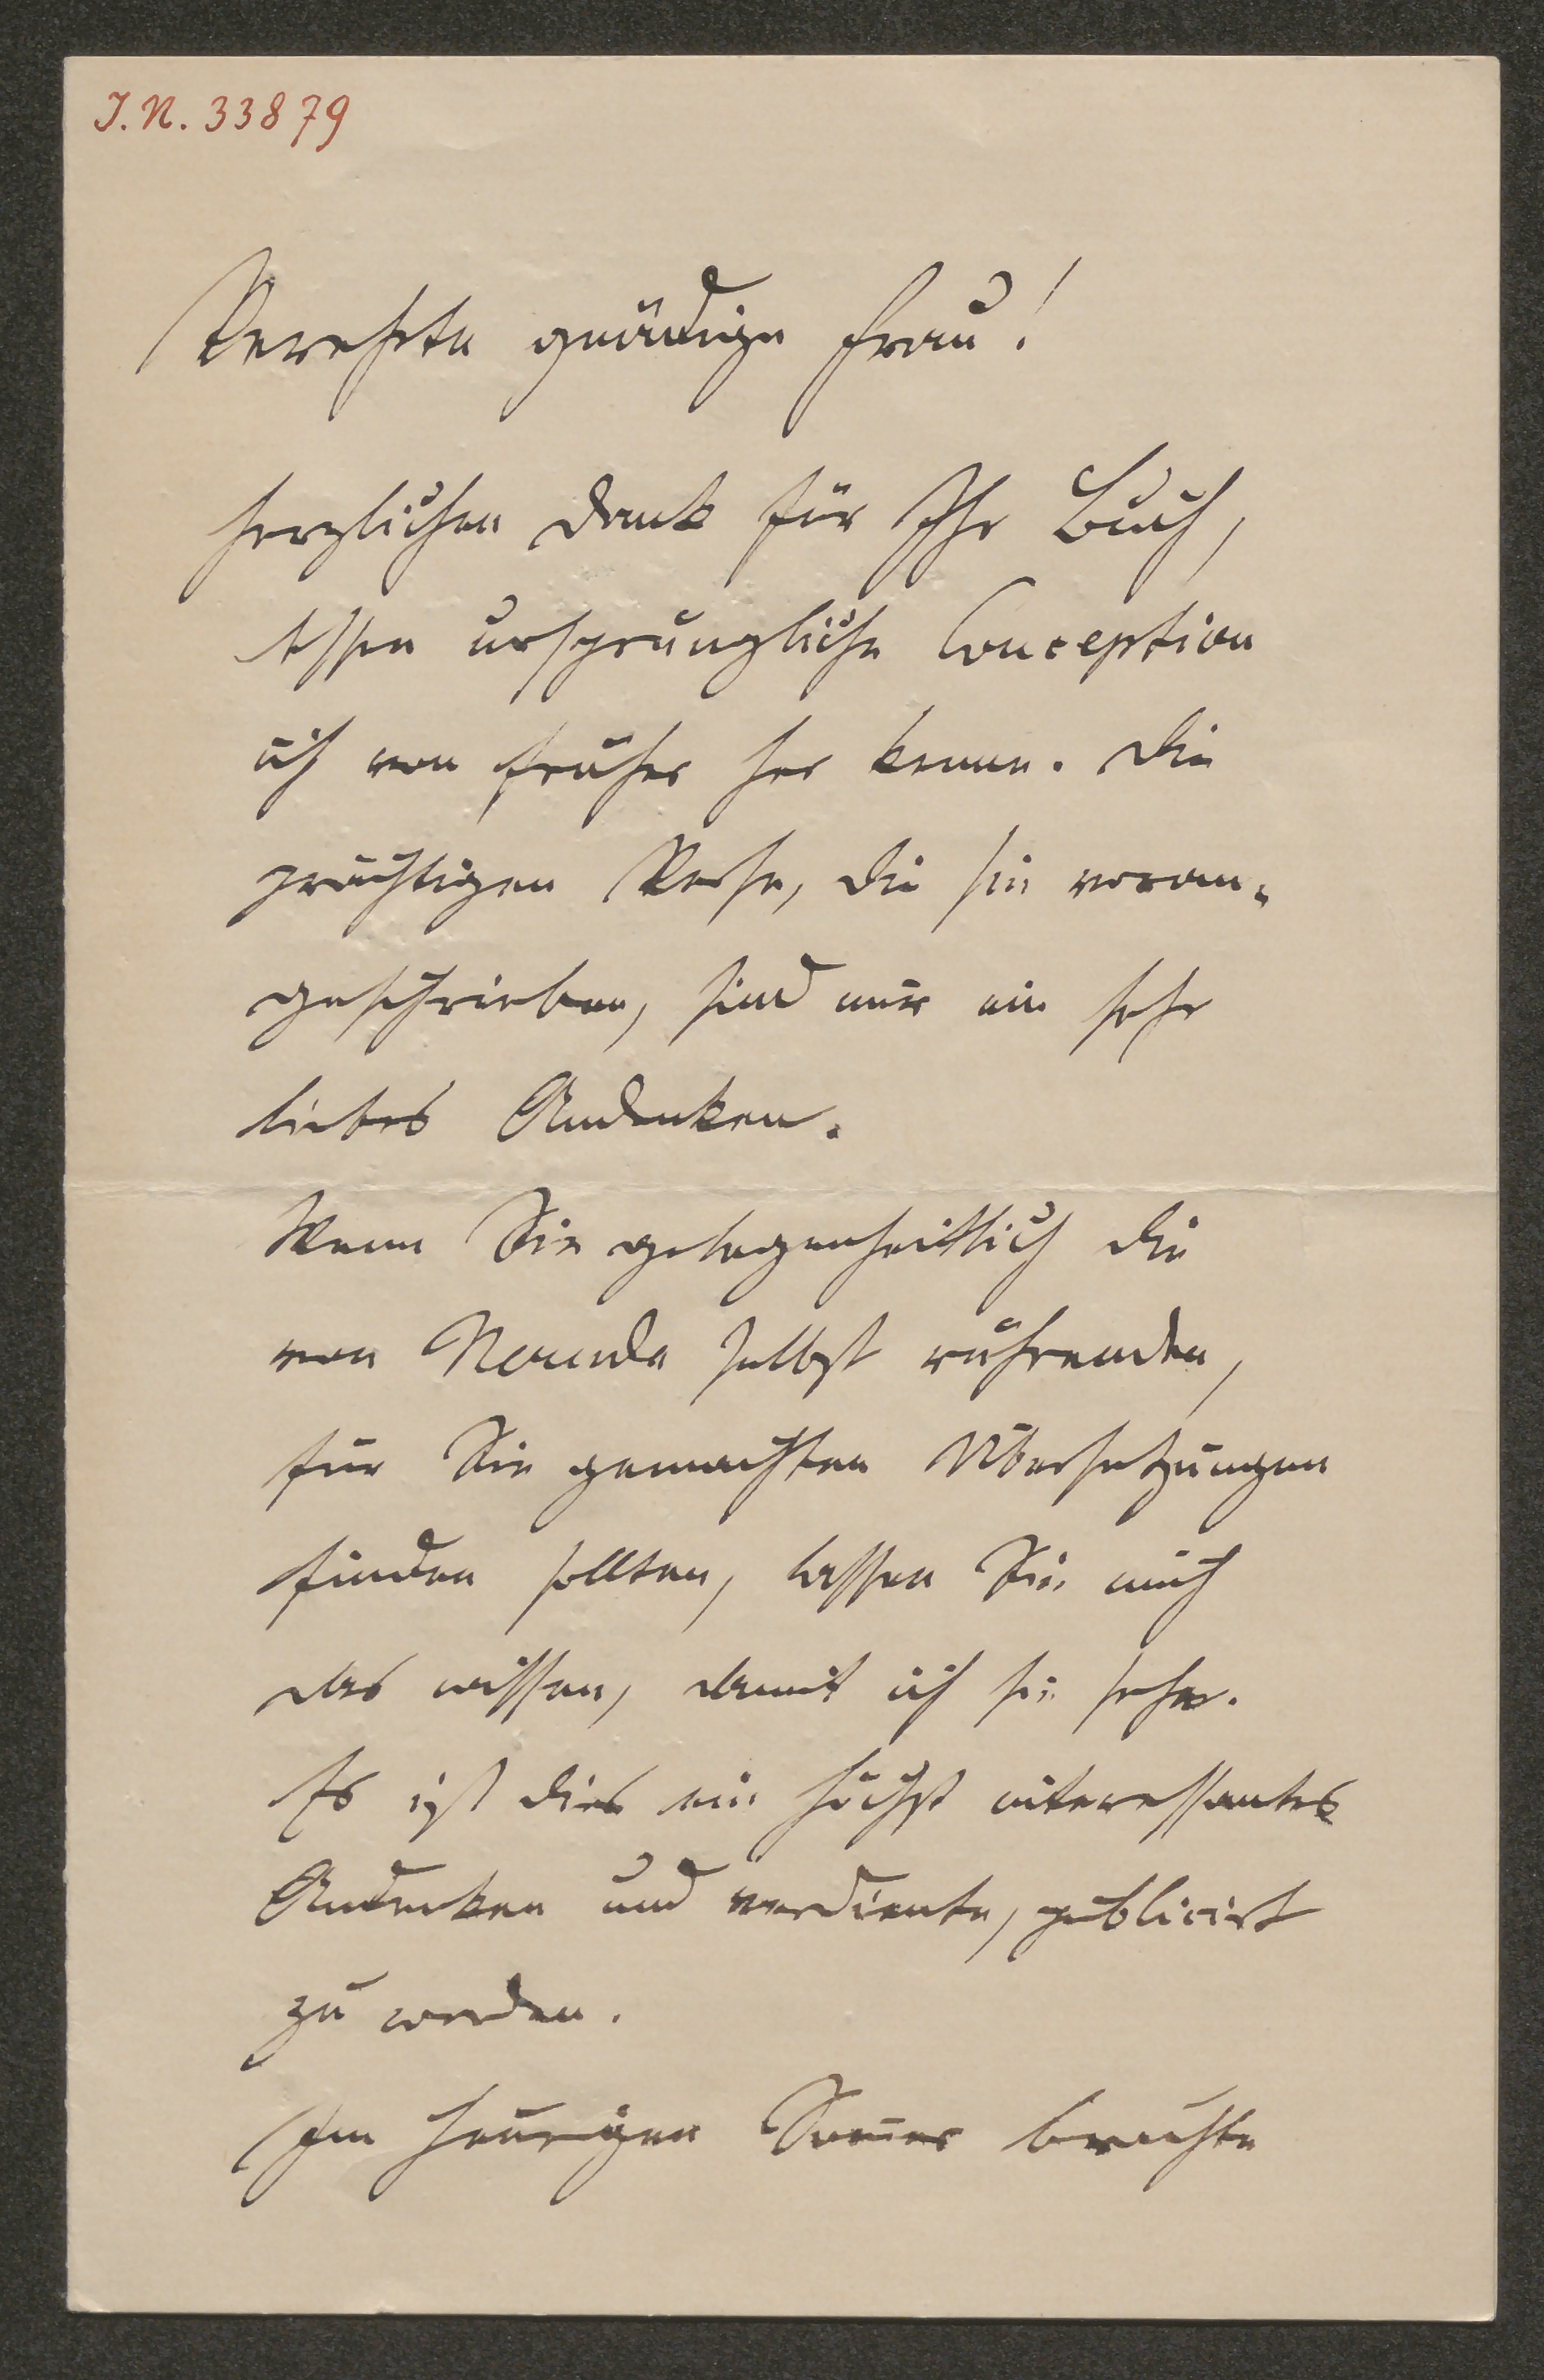 J.N. 33879
Verehrte gnädige Frau!
herzlichen Dank für Ihr Buch,
dessen ursprüngliche Conception
ich von früher her kenne. Die
prächtigen Verse, die Sie voran-
geschrieben, sind mir ein sehr
liebes Andenken.
Wenn Sie gelegenheitlich die
von Neruda selbst rührenden,
für Sie gemachten Übersetzungen
finden sollten, lassen Sie mich
das wissen, damit ich sie sehe.
Es ist dies ein höchst interessantes
Andenken und verdiente, publicirt
zu werden.
Im heurigen Som̅er brachte